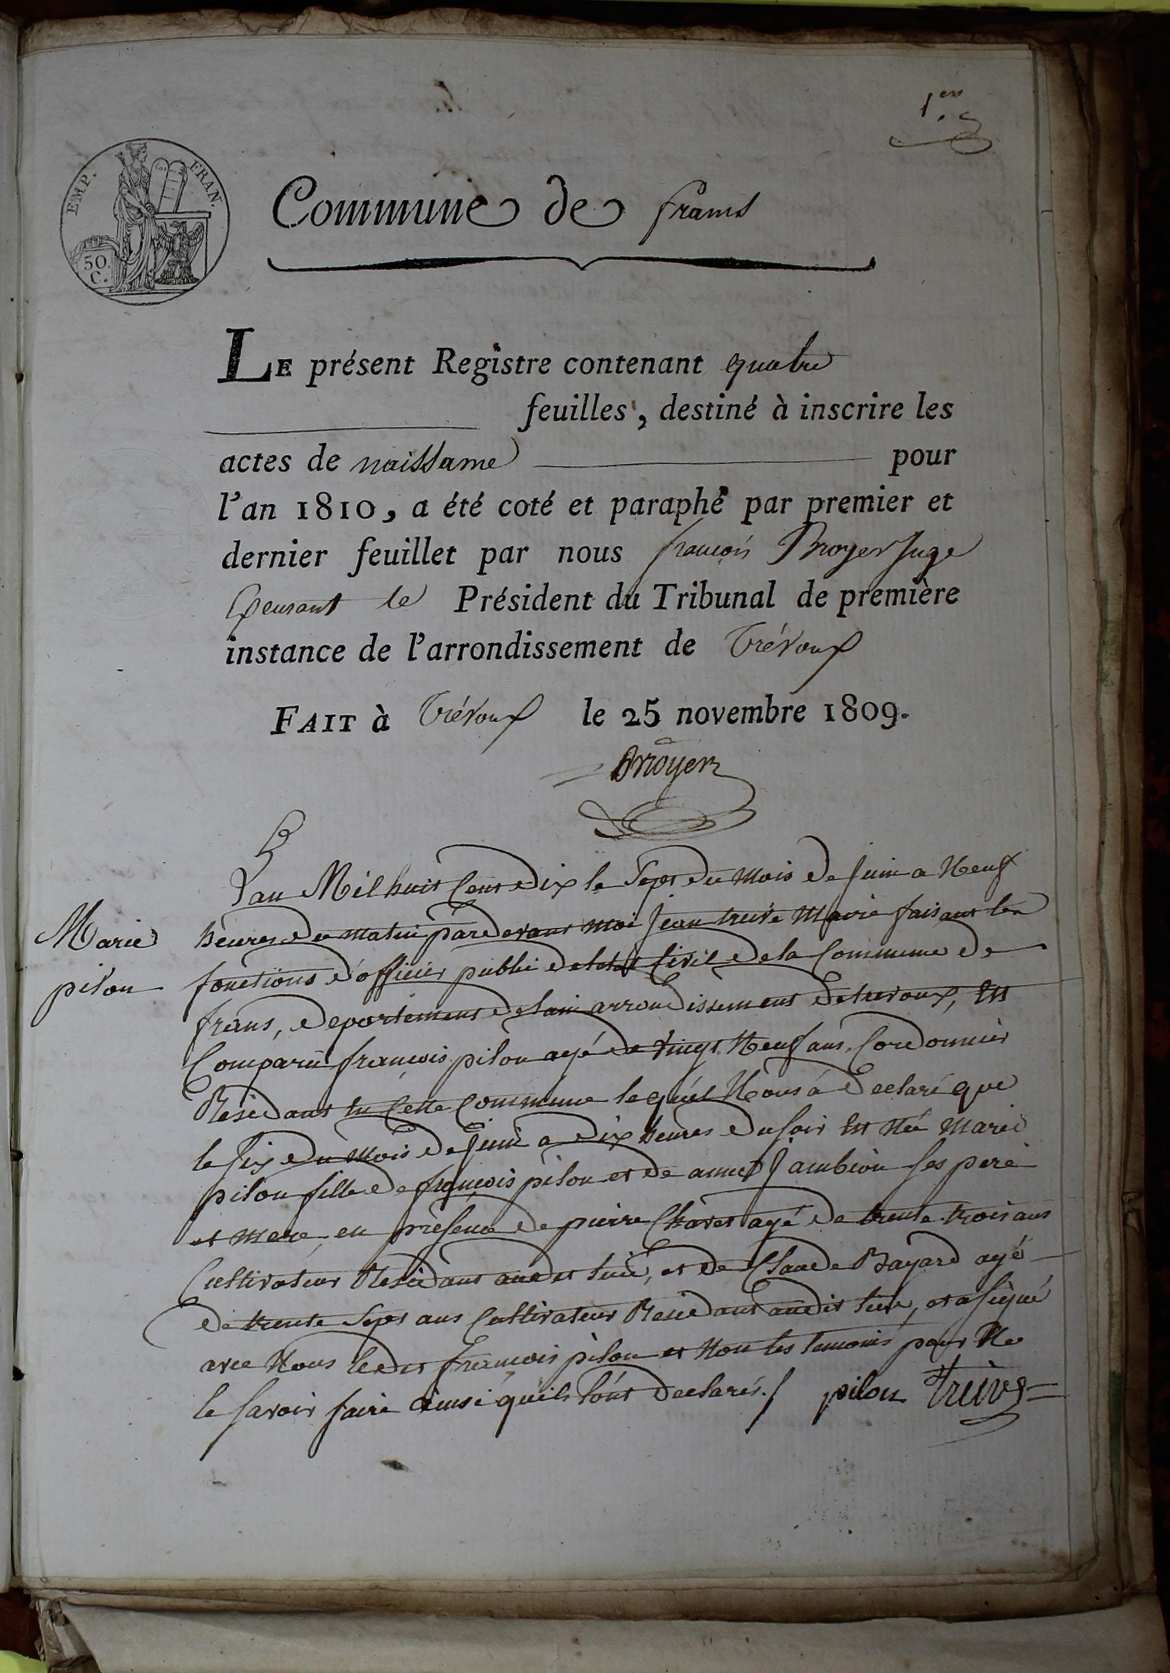 1er
EMP. FRAN.
50 C.
Commune de frans
LE présent Registre contenant quatre
feuilles, destiné à inscrire les
actes de naissance pour
l'an 1810, a été coté et paraphé par premier et
dernier feuillet par nous françois Broyer Juge
Exerçant le Président du Tribunal de première
instance de l'arrondissement de Trévoux
FAIT à Trévoux le 25 novembre 1809.
Broyer
Marie
pilon
L'an Mil huit Cent Dix le Sept du Mois de Juin a Neuf
heures du matin pardevant moi Jean treive Maire faisant les
fonctions d'officier public de letat Civil de la Commune de
frans, departement de lain arrondissement de trevoux, Est
Comparu françois pilon agé de vingt Neuf ans. Cordonnier
Residant En Cette Commune lequel Nous a Declaré que
le six du Mois de Juin a Dix heures du soir Est Née Marie
pilon fille de françois pilon et de anne Jambion ses pere
et mere, en presence de pierre Chavet agé de trente trois ans
Cultivateur Residant audit lieu, et de Claude Bayard agé
De trente Sept ans Cultivateur Residant audit lieu, et a signé
avec Nous ledit françois pilon et Non les temoins pour Ne
le savoir faire ainsi quils l'ont declarés./ pilon Treive